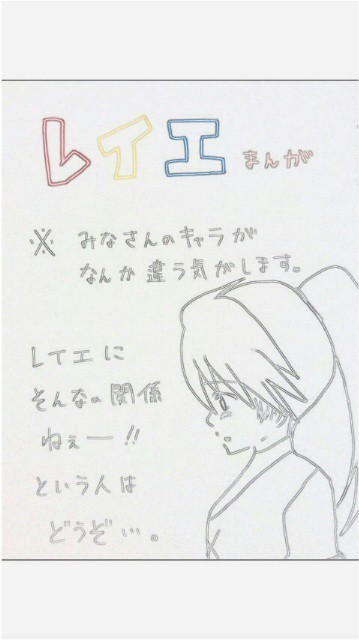 レイエ まんが
※ みなさんのキャラが
なんか違う気がします。
レイエに
そんなの関係
ねぇー!!
という人は
どうぞ…。